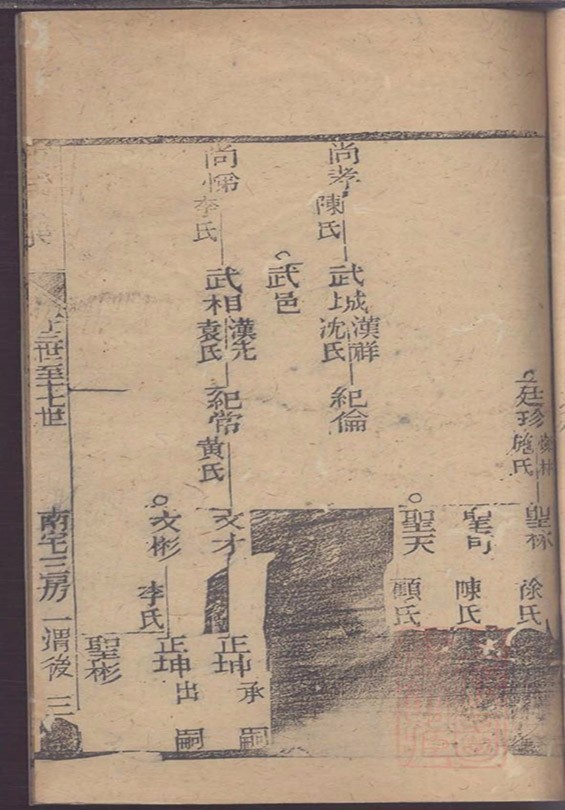 廷珍
施氏
聖
徐氏
陳氏
聖天
顧氏
尚孝
陳氏
武城
漢祥
沈氏
紀倫
武邑
尚悌
李氏
武相
漢先
袁氏
紀常
黃氏
文才
正坤
承嗣
文彬
李氏
正坤
出嗣
聖彬
世至十七世
南宅三房
渭後
三